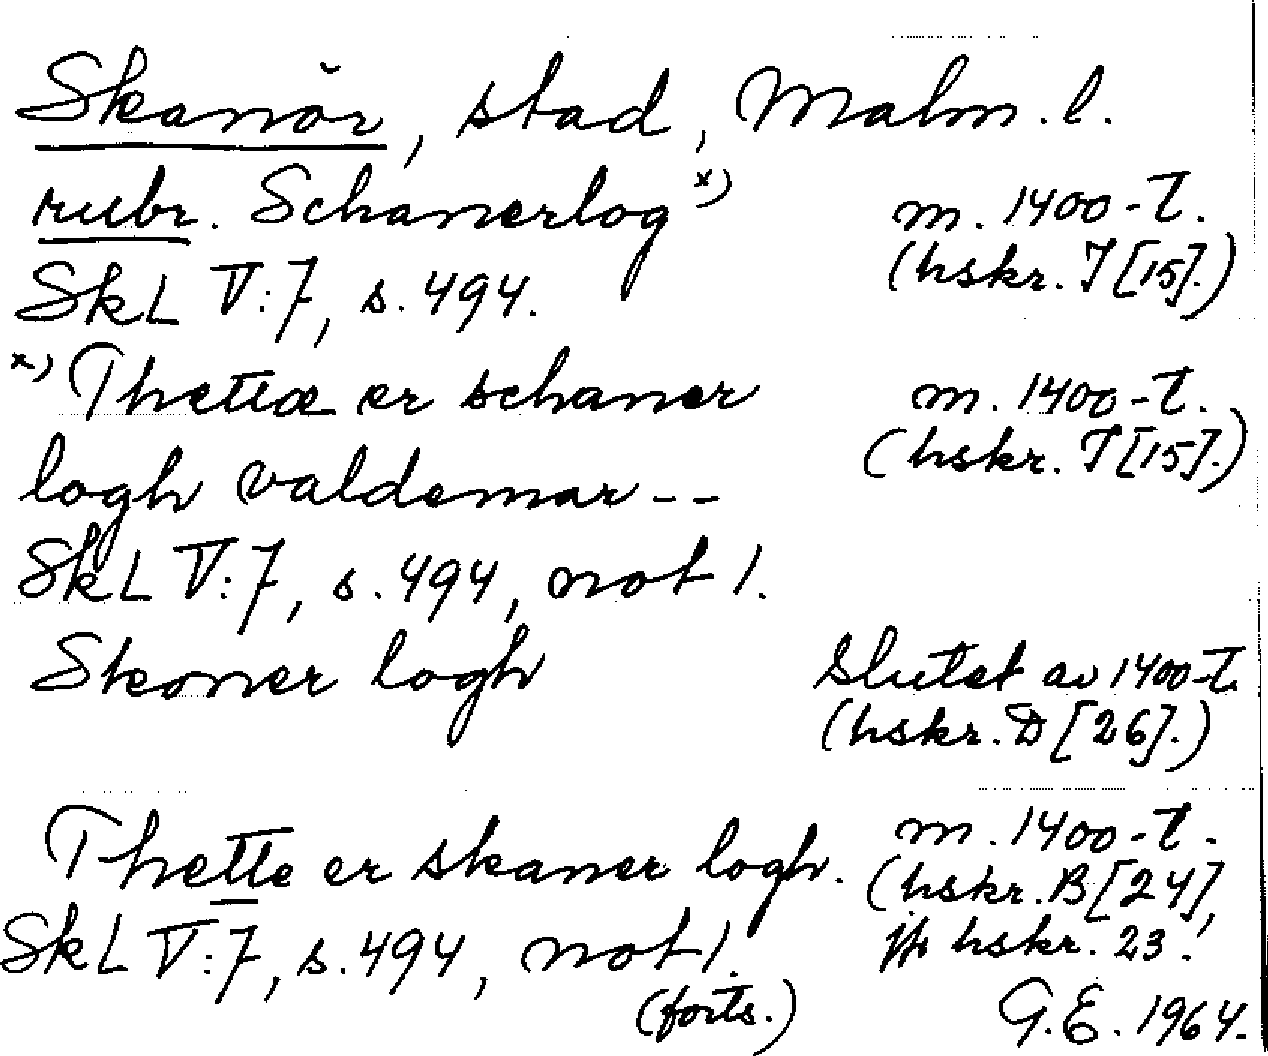 Skanör, stad, Malm. l.
rubr. Schanerlog x) m. 1400-t.
(hskr. I [15].)
SkL V:7, s. 494.
x) Thettæ er schaner m. 1400-t.
(hskr. I [15].)
logh valdemar --
SkL V:7, s. 494, not 1.
Skoner logh slutet av 1400-t.
(hskr. D [26].)
Thette er skaner logh. m. 1400-t.
(hskr. B [24],
SkL V:7, s. 494, not 1. jfr hskr. 23.)
(forts.) G.E. 1964.